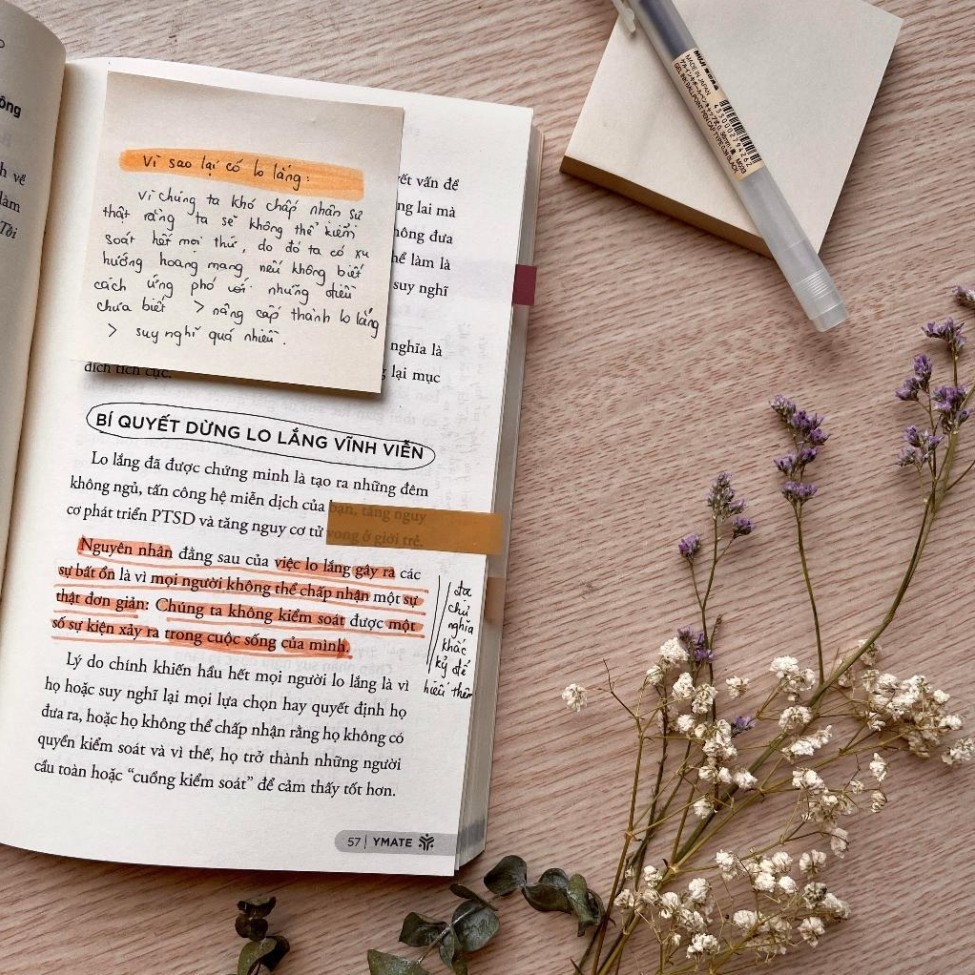 ông
h vẽ
làm
Tôi
Vì sao lại có lo lắng:
Vì chúng ta khó chấp nhận sự
thật rằng ta sẽ không thể kiểm
soát hết mọi thứ, do đó ta có xu
hướng hoang mang nếu không biết
cách ứng phó với những điều
chưa biết > nâng cấp thành lo lắng
> suy nghĩ quá nhiều.
ết vấn đề
ng lai mà
hông đưa
hể làm là
suy nghĩ
nghĩa là
g lại mục
đích tích cực.
BÍ QUYẾT DỪNG LO LẮNG VĨNH VIỄN
Lo lắng đã được chứng minh là tạo ra những đêm
không ngủ, tấn công hệ miễn dịch của bạn, tăng nguy
cơ phát triển PTSD và tăng nguy cơ tử vong ở giới trẻ.
Nguyên nhân đằng sau của việc lo lắng gây ra các
sự bất ổn là vì mọi người không thể chấp nhận một sự
thật đơn giản: Chúng ta không kiểm soát được một
số sự kiện xảy ra trong cuộc sống của mình.
đọc
chủ
nghĩa
khắc
kỷ để
hiểu thêm
Lý do chính khiến hầu hết mọi người lo lắng là vì
họ hoặc suy nghĩ lại mọi lựa chọn hay quyết định họ
đưa ra, hoặc họ không thể chấp nhận rằng họ không có
quyền kiểm soát và vì thế, họ trở thành những người
cầu toàn hoặc “cuồng kiểm soát” để cảm thấy tốt hơn.
57 | YMATE
MUJI 無印良品
MADE IN JAPAN
4550002794262